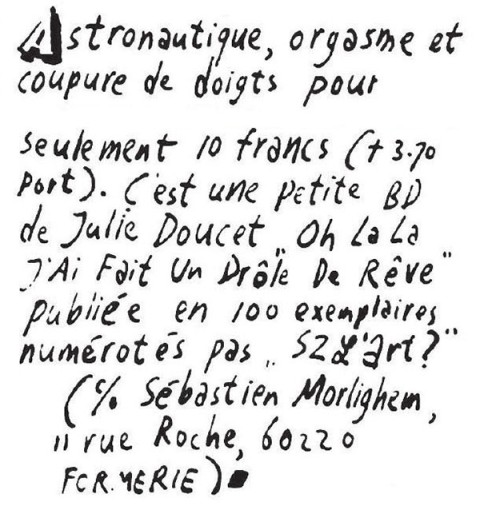 Astronautique, orgasme et
coupure de doigts pour
seulement 10 francs (+ 3.70
port). C'est une petite BD
de Julie Doucet „ Oh La La
J'Ai Fait Un Drôle De Rêve"
publiée en 100 exemplaires
numérotés pas „ S2 L'art?"
(℅ Sébastien Morlighem,
11 rue Roche, 60220
FORMERIE)